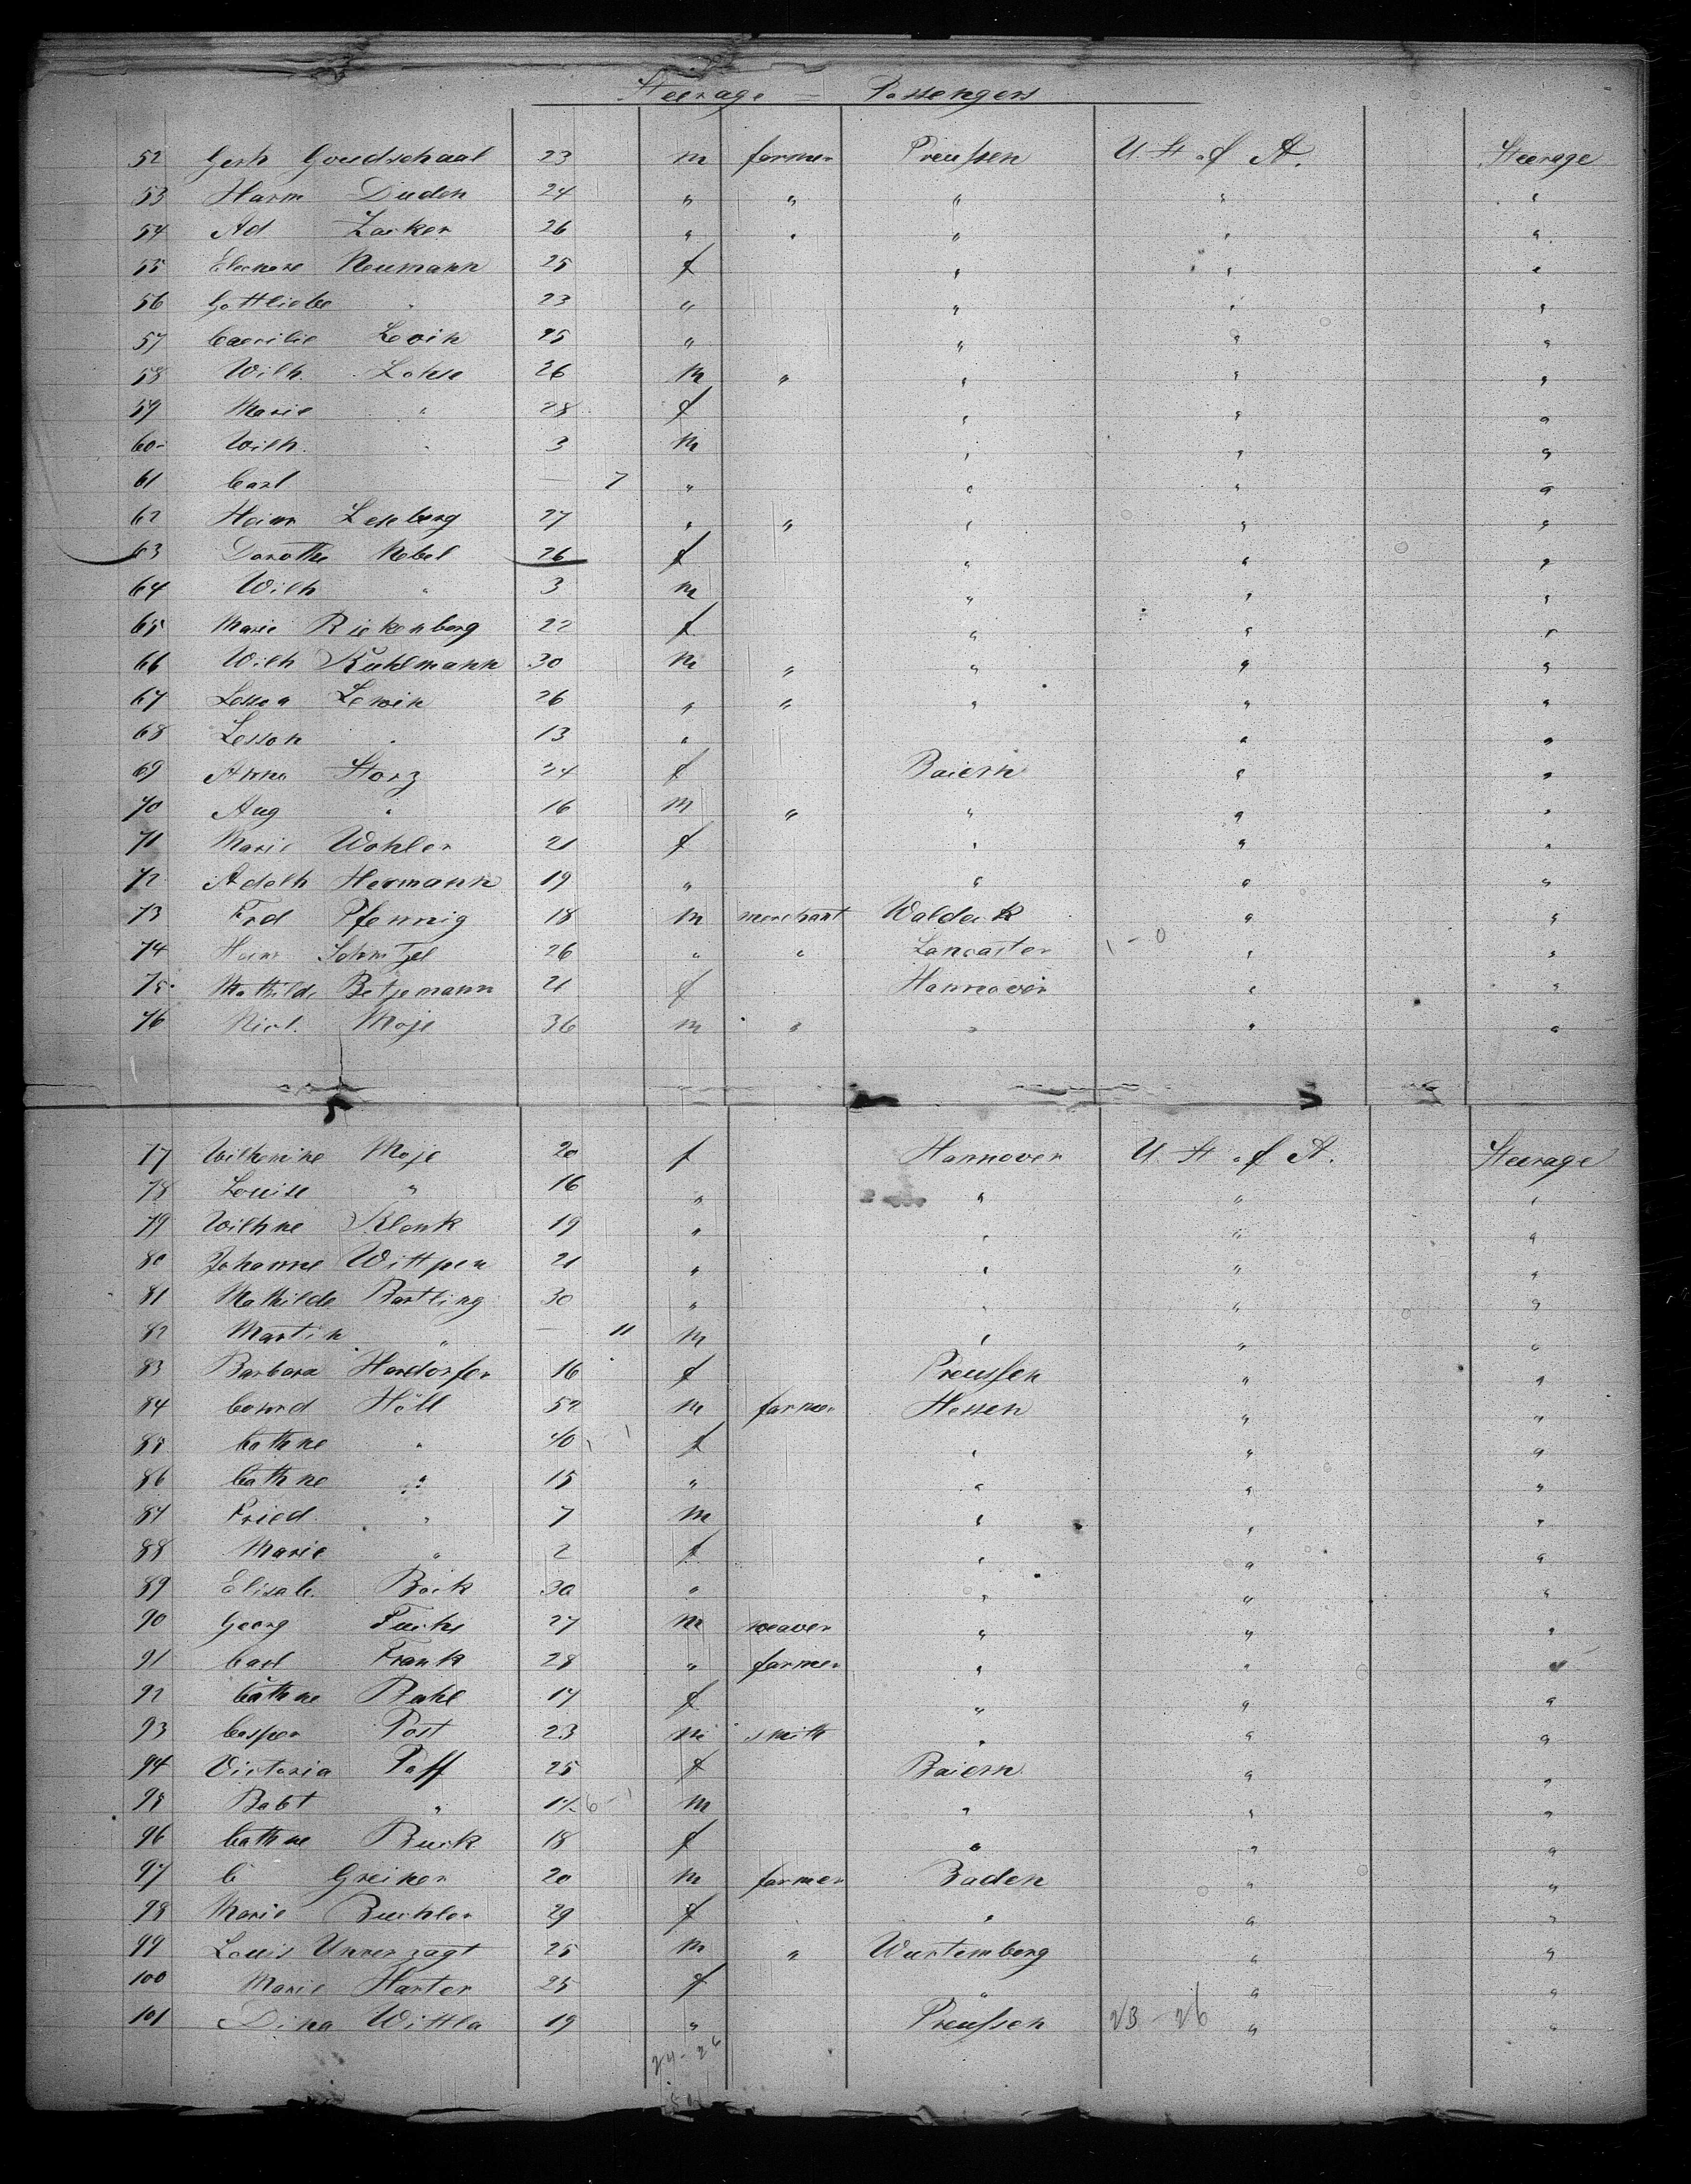 Steerage = Passengers
52 Gerh Goudschaal 23 m farmer Preußen U. St. of A. Steerage
53 Harm Duden 24 " " " " "
54 Ad. Zacker 26 " " " " "
55 Eleonore Neumann 25 f " " "
56 Gottliebe " 23 " " " "
57 Caecilie Levin 25 " " " "
58 Wilh. Lohse 26 m " " " "
59 Marie " 28 f " " "
60 Wilh. " 3 m " " "
61 Carl — 7 " " " "
62 Heinr Leseberg 27 " " " " "
63 Dorothe Nebel 26 f " " "
64 Wilh " 3 m " " "
65 Marie Riekenberg 22 f " " "
66 Wilh Kuhlmann 30 m " " " "
67 Lewin 26 " " " " "
68 Lesson " 13 " " " "
69 Anna Storz 24 f Baiern " "
70 Aug " 16 m " " " "
71 Marie Wohler 21 f " " "
72 Adelh Hermann 19 " " " "
73 Frd Pfennig 18 m merchant Waldeck " "
74 Heinr 26 " " Lancaster 1 - 0 " "
75 Mathilde Betjemann 21 f Hannover " "
76 Nicl. Moje 36 m " " " "
77 Wilhemine Moje 20 f Hannover U. St. of A. Steerage
78 Louise " 16 " " " "
79 Wilhne Klenk 19 " " " "
80 Johanne Wittpen 21 " " " "
81 Mathilde Bartling 30 " " " "
82 Martin " — 11 m " " "
83 Barbara Hardorfer 16 f Preußen " "
84 Conrd Höll 52 m farmer Hessen " "
85 Cathne " 40 f " " "
86 Cathne " 15 " " " "
87 Fried. " 7 m " " "
88 Marie " 2 f " " "
89 Elisab. Böck 30 " " " "
90 Georg Fuchs 27 m weaver " " "
91 Carl Frank 28 " farmer " " "
92 Cathne 17 f " " "
93 Casper Post 23 m smith " " "
94 Victoria Paff 25 f Baiern " "
95 Babt " 6 - 1 m " " "
96 Cathne Buck 18 f " " "
97 C Greiner 20 m farmer Baden " "
98 Marie Buchler 29 f " " "
99 Louis Unverzagt 25 m " Wurtemberg " "
100 Marie Harter 25 f " " "
101 Dina Wittla 19 " Preußen 23 - 26 " "
24 - 26